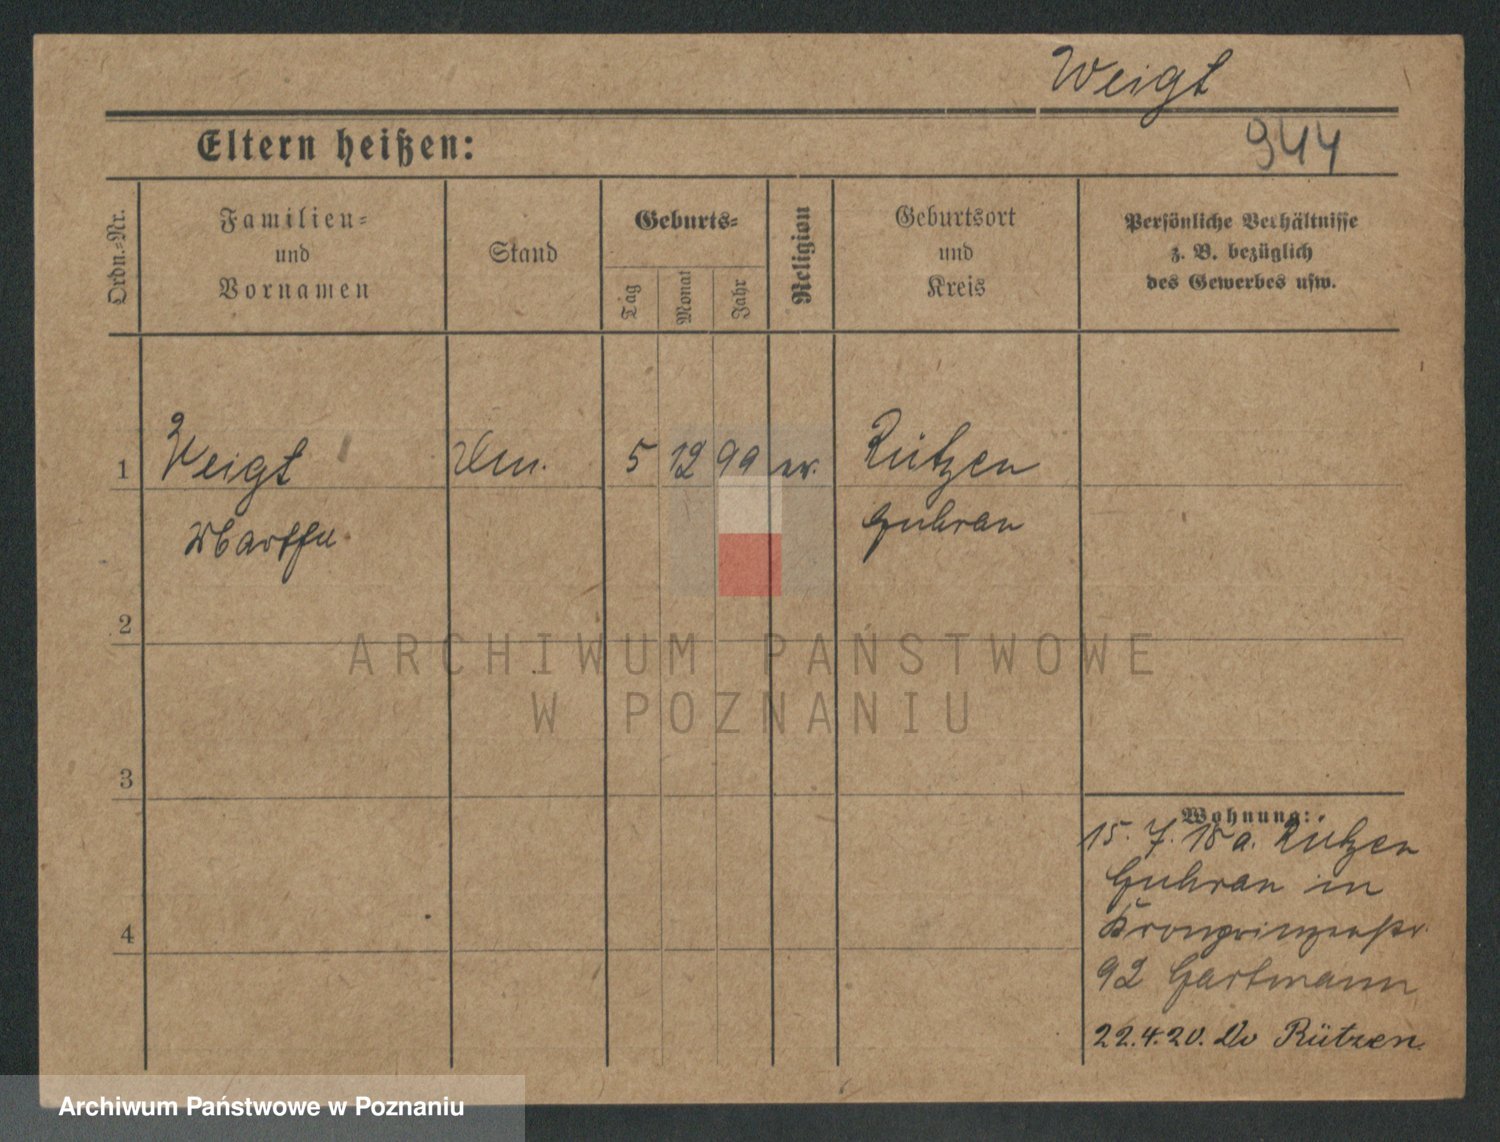 Weigt
Eltern heißen:
944
Ordn.-Nr.
Familien-
und
Vornamen
Stand
Geburts-
Tag
Monat
Jahr
Religion
Geburtsort
und
Kreis
Persönliche Verhältnisse
z. B. bezüglich
des Gewerbes usw.
1
Weigt
5
12
99
ev.
Rützen
Martha
Guhrau
2
ARCHIWUM PAŃSTWOWE
W POZNANIU
3
Wohnung:
15. 7. 18 a. Rützen
Guhrau in
Kronprinzenstr.
92 Hartmann
4
22.4.20. Rützen
Archiwum Państwowe w Poznaniu